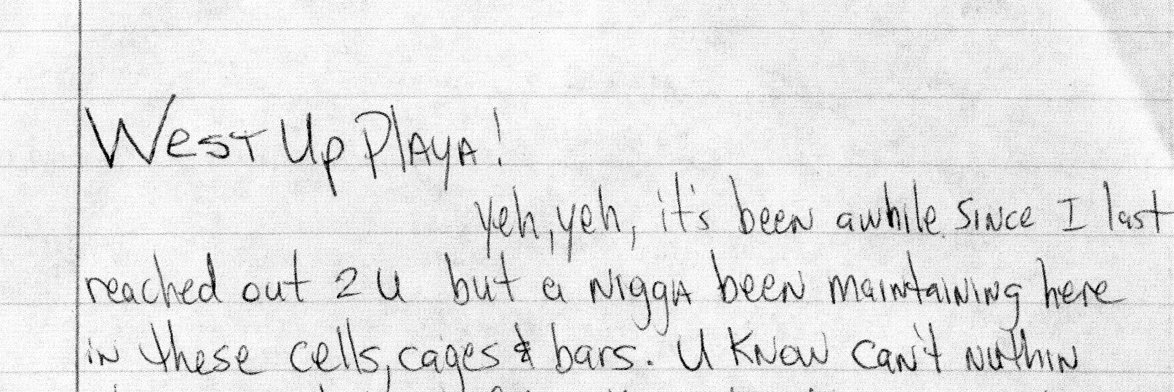 West Up Playa!
yeh, yeh, it's been awhile since I last
reached out 2 U but a nigga been maintaining here
in these cells, cages & bars. U know can't nuthin